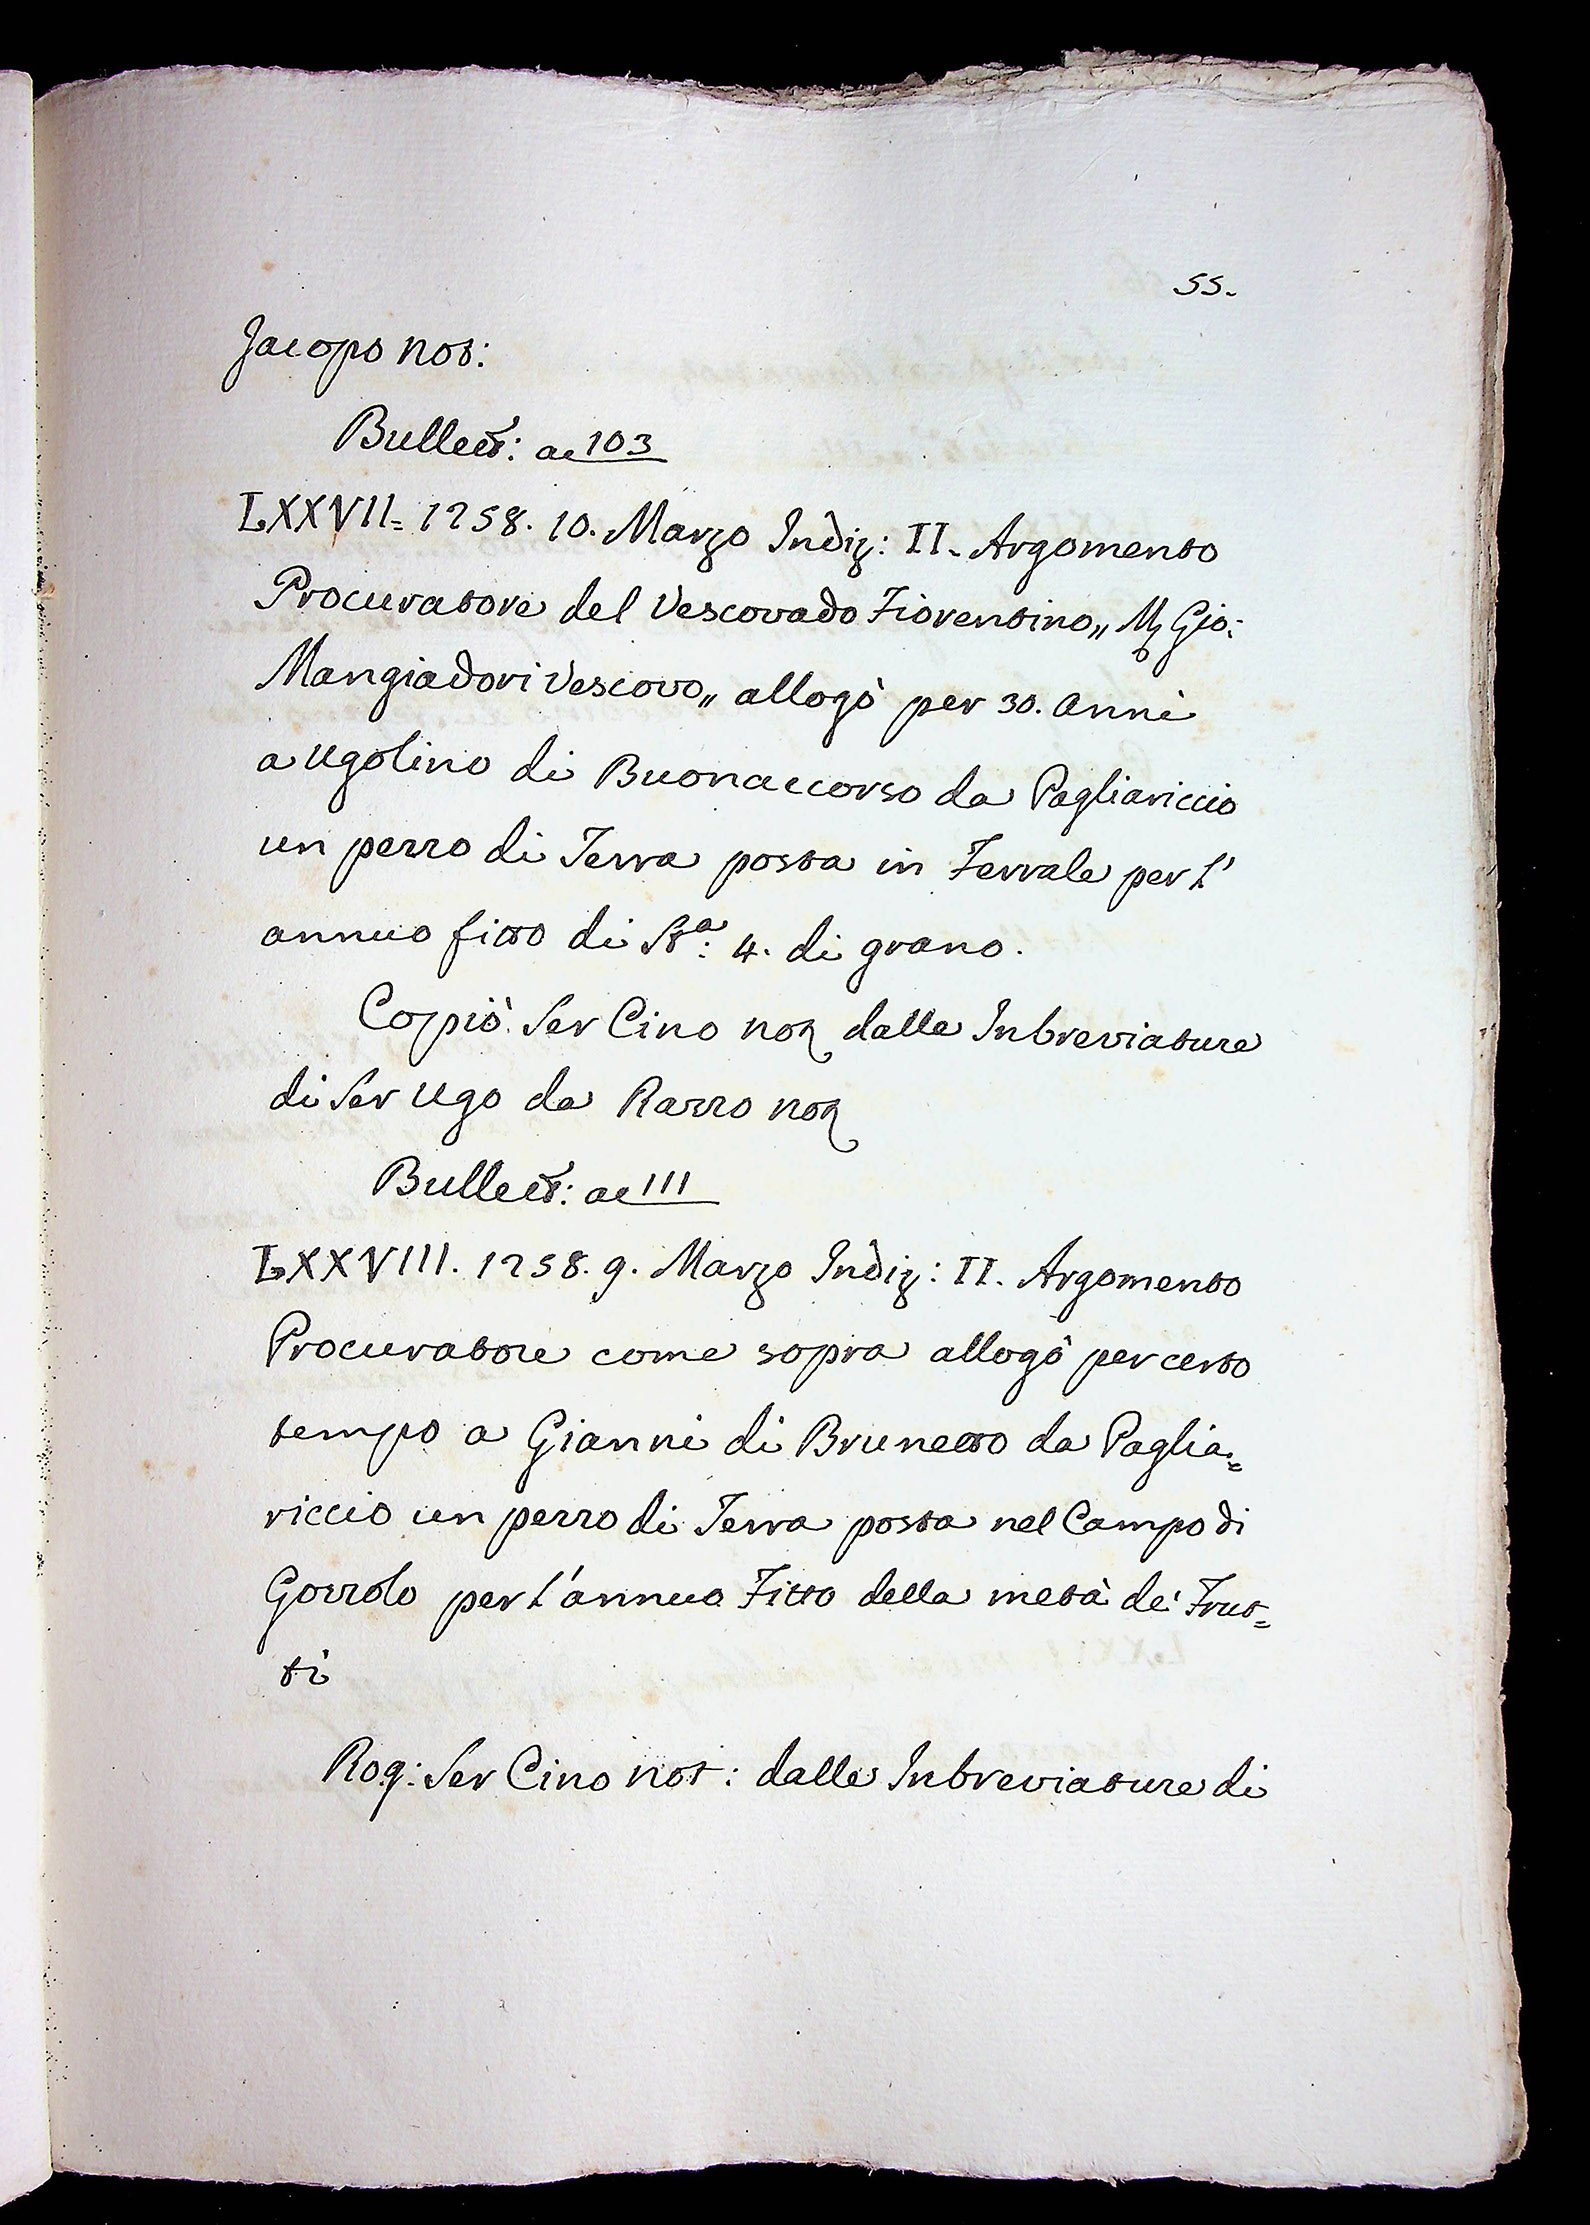 55.
Jacopo not:
Bullett: ac 103
LXXVII= 1258. 10. Marzo Indiz: II. Argomento
Procuratore del Vescovado Fiorentino,, Mg Gio:
Mangiadori Vescovo,, allogò per 30. anni
a Ugolino di Buonaccorso da Pagliariccio
un pezzo di Terra posta in Ferrale per l'
annuo fitto di Sta: 4. di grano.
Copiò Ser Cino not dalle Inbreviature
di Ser Ugo da Razzo not
Bullett: ac 111
LXXVIII. 1258. 9. Marzo Indiz: II. Argomento
Procuratore come sopra allogò per certo
tempo a Gianni di Brunetto da Paglia=
riccio un pezzo di Terra posta nel Campo di
Gozzolo per l'annuo Fitto della metà de' Frut=
ti
Rog: Ser Cino not: dalle Inbreviature di